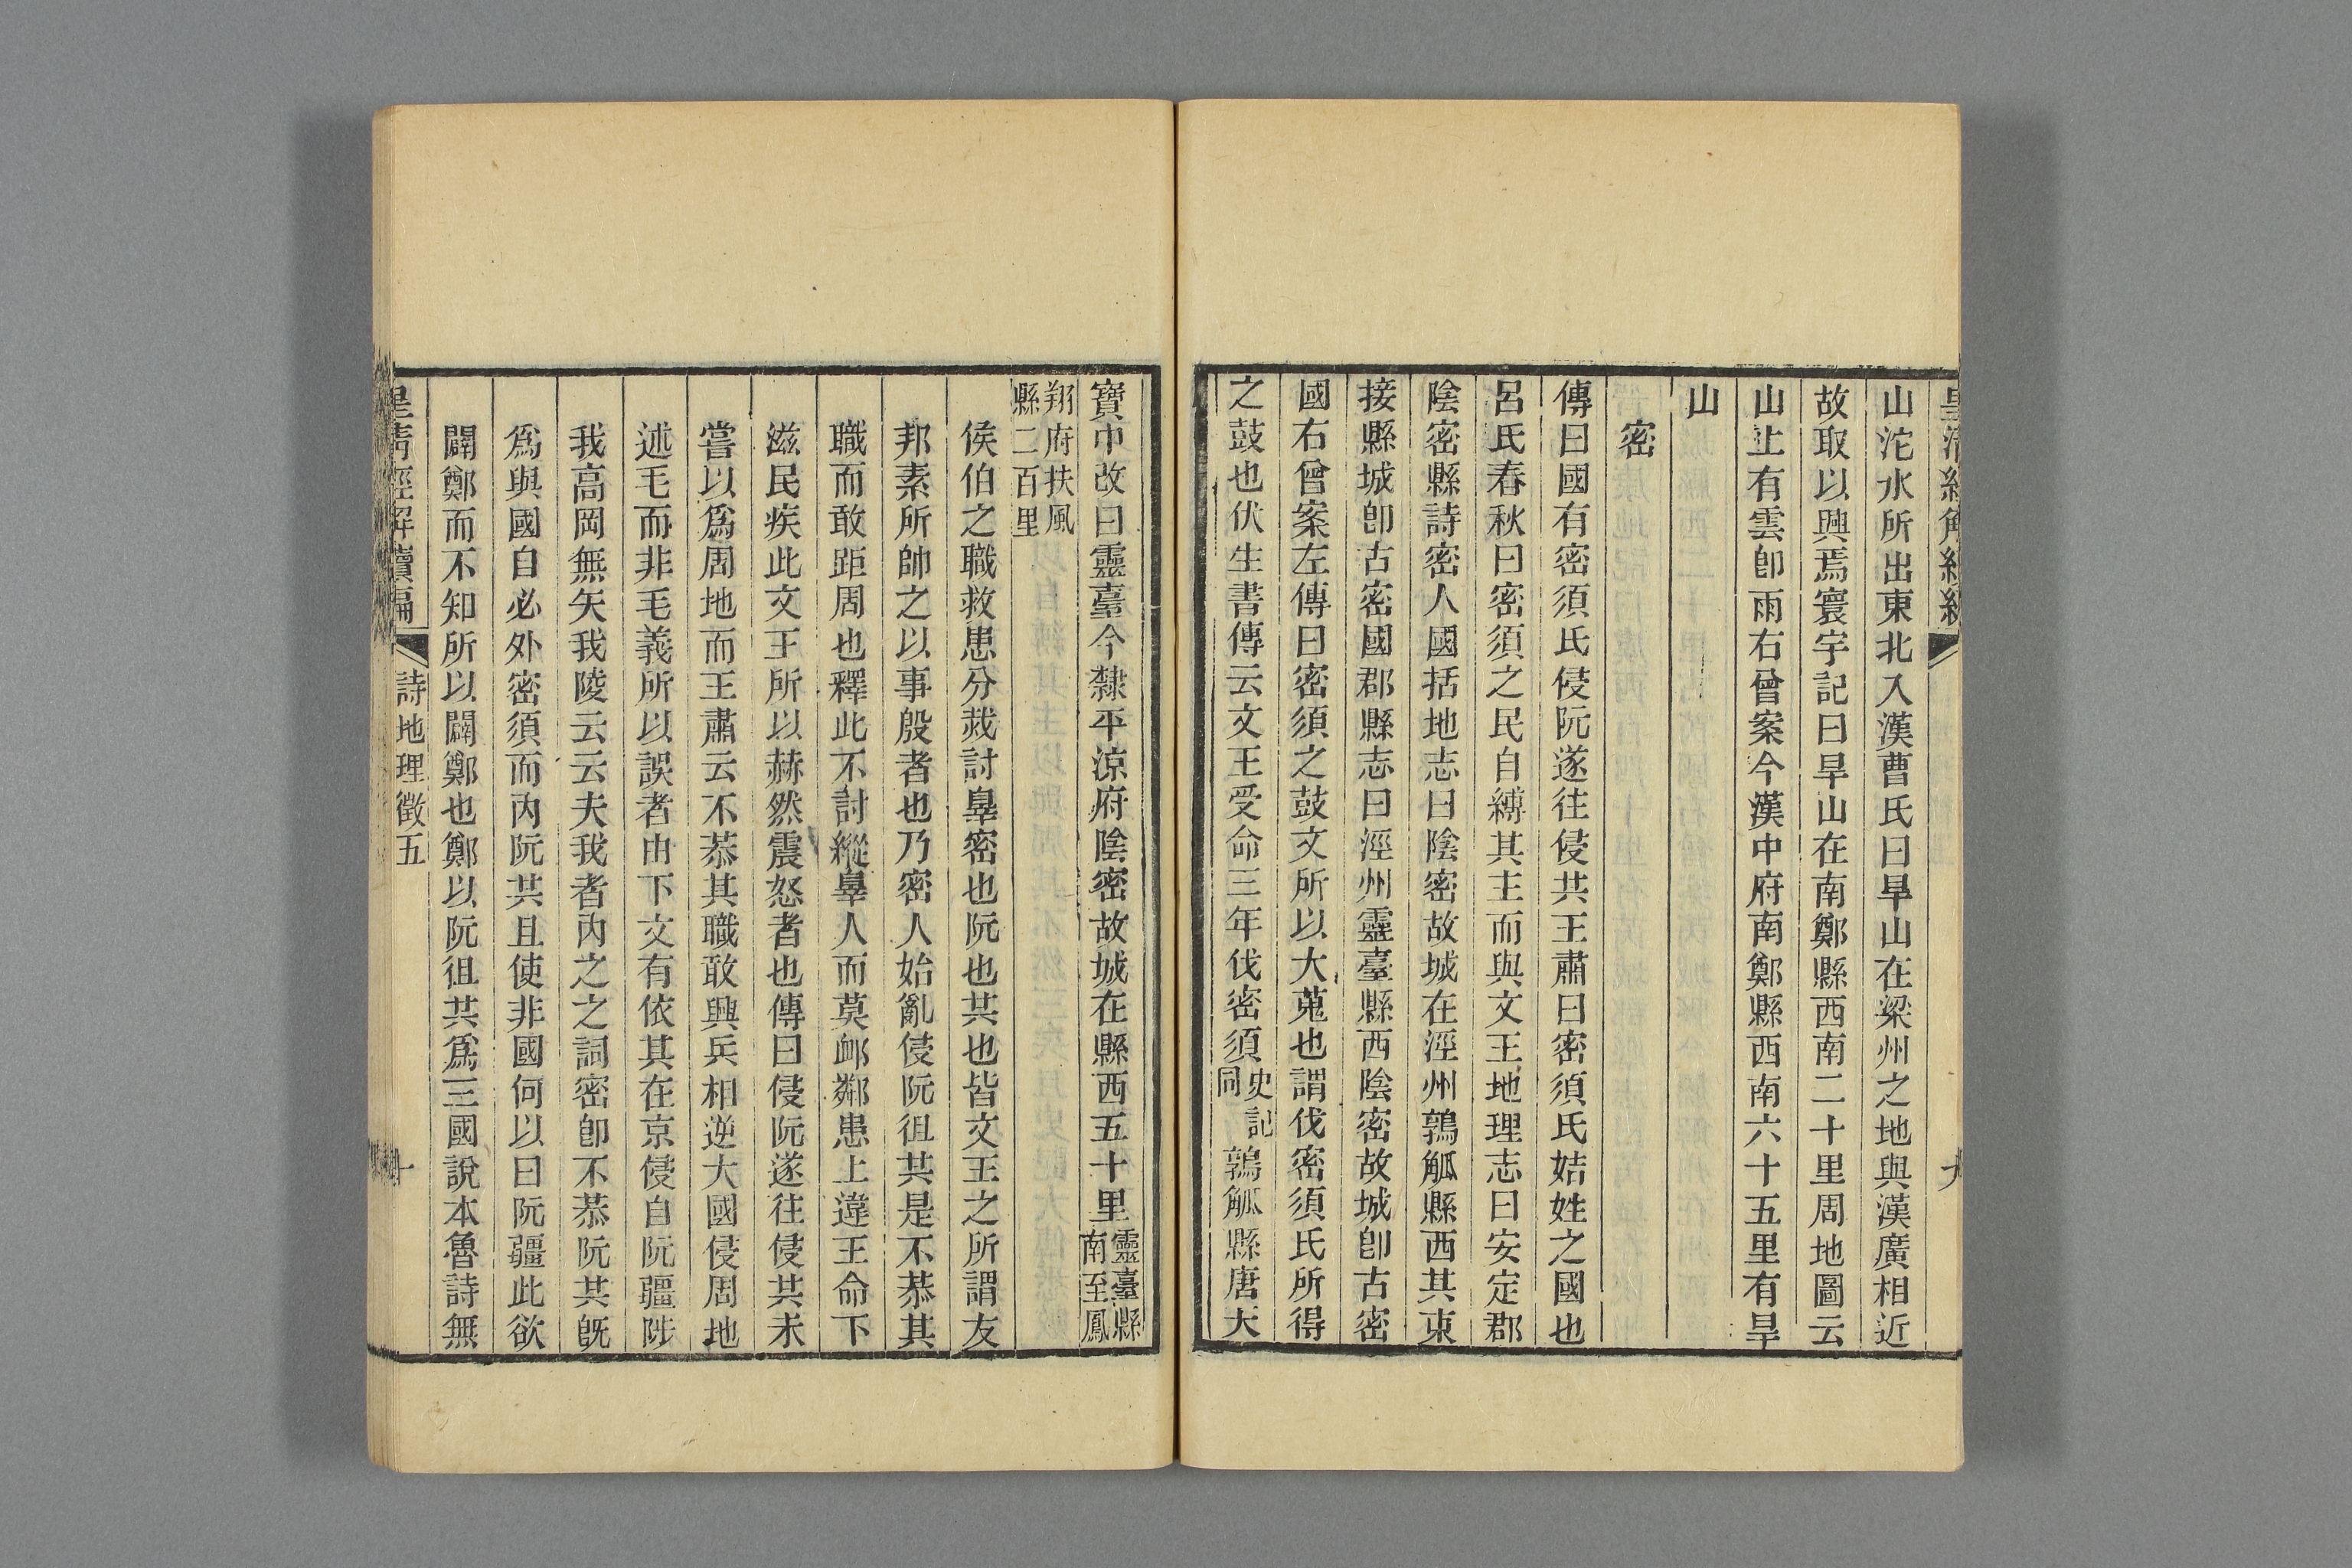 山沱水所出東北入漢曹氏曰旱山在梁州之地與漢廣相近
故取以興焉寰宇記曰旱山在南鄭縣西南二十里周地圖云
山上有雲卽雨右曾案今漢中府南鄭縣西南六十五里有旱
山
密
傳曰國有密須氏侵阮遂往侵共王肅曰密須氏姞姓之國也
呂氏春秋曰密須之民自縛其主而與文王地理志曰安定郡
陰密縣詩密人國括地志曰陰密故城在涇州鶉觚縣西其東
接縣城卽古密國郡縣志曰涇州靈臺縣西陰密故城卽古密
國右曾案左傳曰密須之鼓文所以大蒐也謂伐密須氏所得
之鼓也伏生書傳云文王受命三年伐密須史記同鶉觚縣唐天
寶中改曰靈臺今隸平涼府陰密故城在縣西五十里靈臺縣南至鳳
翔府扶風縣二百里
侯伯之職救患分烖討辠密也阮也共也皆文王之所謂友
邦素所帥之以事殷者也乃密人始亂侵阮徂共是不恭其
職而敢距周也釋此不討縱辠人而莫卹鄰患上違王命下
滋民疾此文王所以赫然震怒者也傳曰侵阮遂往侵共未
嘗以爲周地而王肅云不恭其職敢興兵相逆大國侵周地
述毛而非毛義所以誤者由下文有依其在京侵自阮疆陟
我高岡無矢我陵云云夫我者內之之詞密卽不恭阮共旣
爲與國自必外密須而內阮共且使非國何以曰阮疆此欲
闢鄭而不知所以闢鄭也鄭以阮徂共爲三國說本魯詩無
皇淸經解續編 詩地理徵五 十